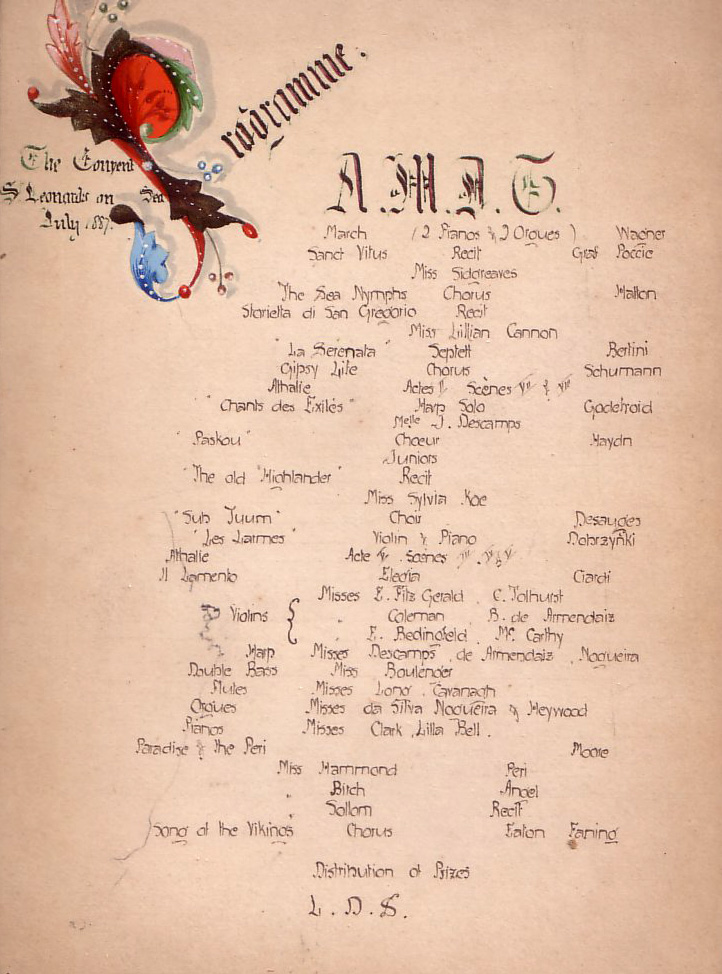 Programme.
The Convent
S Leonards on Sea
July 1887.
A.M.D.G.
March (2 Pianos & 2 Orgues) Wagner
Sanct Vitus Recit Graf Poccie
Miss Sidgreaves
The Sea Nymphs Chorus Mallon
Storietta di San Gregorio Recit
Miss Lillian Cannon
"La Serenata" Septett Bertini
Gipsy Life Chorus Schumann
Athalie Actes Scènes
"Chants des Exilés" Harp Solo Godefroid
Melle J. Descamps
"Paskou" Chœur Haydn
Juniors
"The old Highlander" Recit
Miss Sylvia Koe
"Sub Tuum" Choir Desauges
"Les Larmes" Violin & Piano Dobrzyńki
Athalie Acte Scènes
Il Lamento Elegia Ciardi
Misses E. Fitz Gerald C. Tolhurst
Violins { " Coleman B. de Armendaiz
F. Bedingfeld Mc Carthy
Harp Misses Descamps, de Armendaiz, Nogueira
Double Bass Miss Boulenger
Flutes Misses Long, Cavanagh
Orgues Misses da Silva Nogueira & Heywood
Pianos Misses Clark, Lilla Bell.
Paradise & the Peri Moore
Miss Hammond Peri
" Bitch Angel
" Sollom Recit
Song of the Vikings Chorus Eaton Faning
Distribution of Prizes
L.D.S.